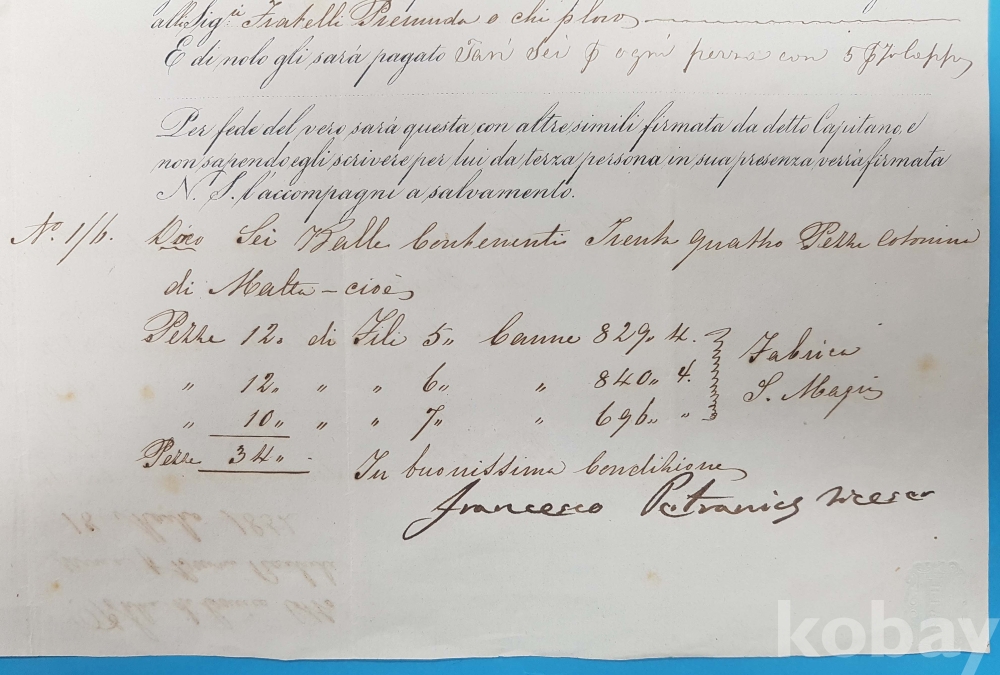 alli Sig.ri Fratelli Premuda o chi p loro
E di nolo gli sará pagato Tari Sei ogni pezza con 5
Per fede del vero sará questa con altre simili firmata da detto Capitano, e
non sapendo egli scrivere per lui da terza persona in sua presenza verrà firmata
N. S. l'accompagni a salvamento.
No. 1/6. Dico Sei Balle Contenenti Trenta quattro Pezze Cotonine
di Malta - cioè
Pezze 12. di Fili 5" Canne 829" 4. Fabrica
" 12" " " 6" " 840" 4. S. Magri
" 10" " " 7" " 696" "
Pezze 34"
In buonissima Condizione
Francesco
kobay